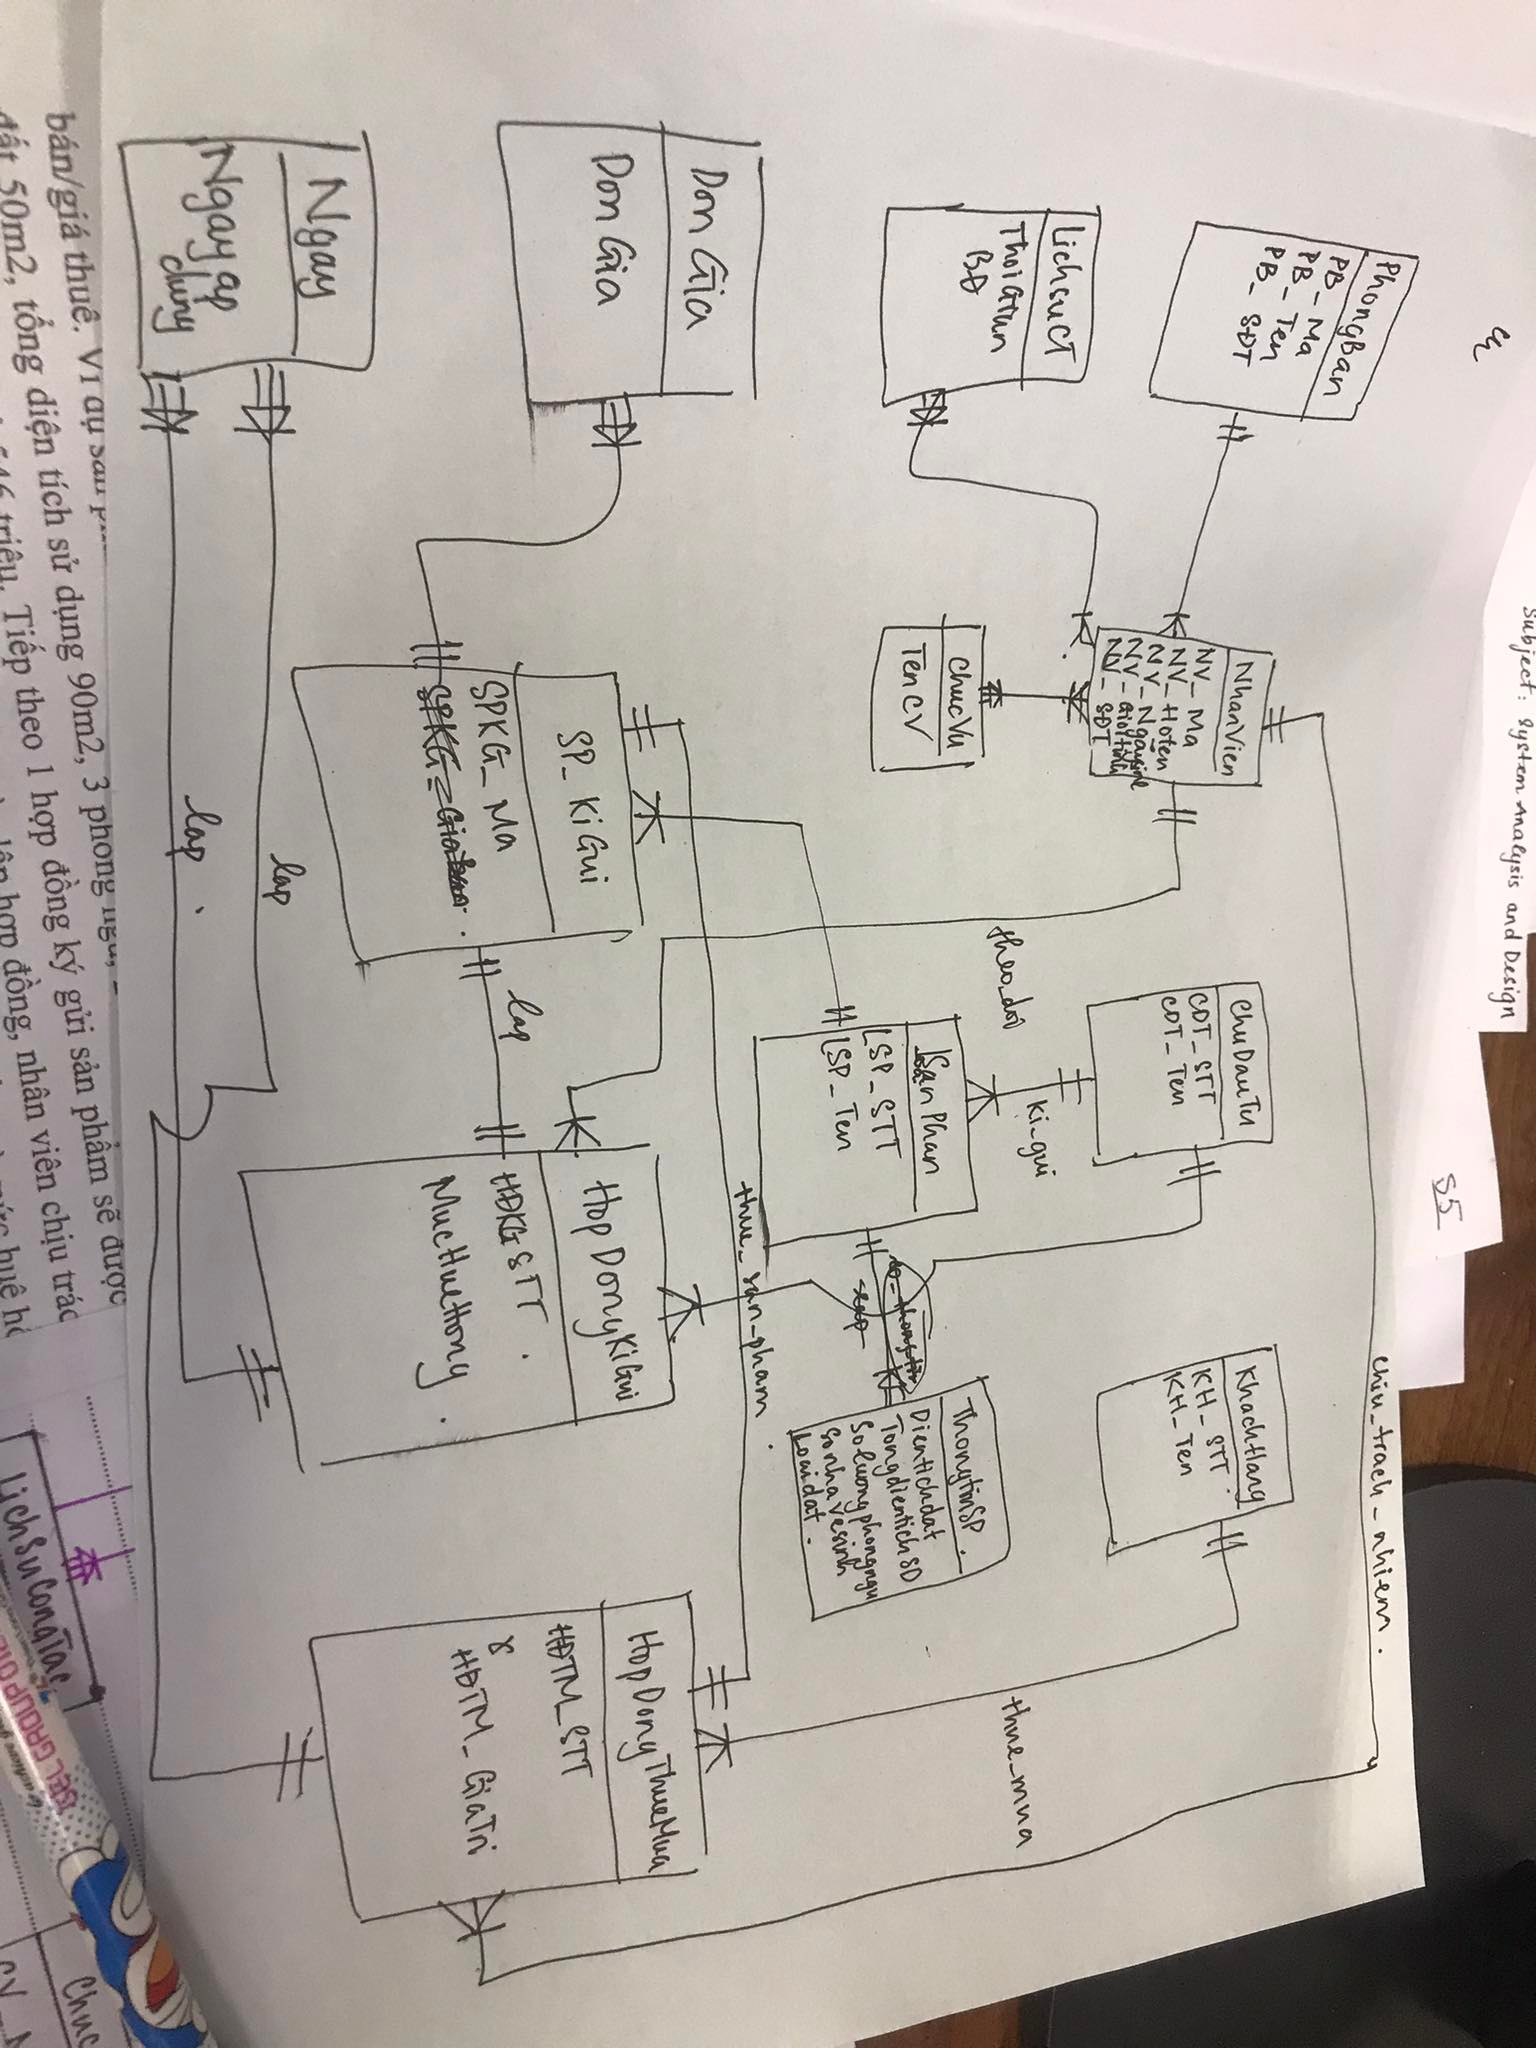 Subject: System Analysis and Design
S5
chiu_trach_nhiem.
PhongBan
PB_ Ma
PB_ Ten
PB_ SĐT
NhanVien
NV_ Ma
NV_ Hoten
NV_ Ngaysinh
NV_ Gioitinh
NV_ SĐT
ChuDauTu
CDT_ STT
CDT_ Ten
KhachHang
KH_ STT
KH_ Ten
LichsuCT
ThoiGian
BĐ
ChucVu
TenCV
theo_doi
ki_gui
thue_mua
SanPhan
LSP_ STT
LSP_ Ten
co_thongtin
ThongtinSP.
Dientichdat
TongdientichSD
Soluongphongngu
Sonhavesinh
Loaidat.
thue_san_pham
Don Gia
Don Gia
SP_ KiGui
SPKG_ Ma
SPKG_ Giaban
lap
HopDongKiGui
HĐKG STT
MucHueHong
HopDongThueMua
HĐTM_STT
HĐTM_ GiaTri
Ngay
Ngay ap
dung
lap
lap
bán/giá thuê. Ví dụ sản
đất 50m2, tổng diện tích sử dụng 90m2, 3 phòng ngủ,
triệu. Tiếp theo 1 hợp đồng ký gửi sản phẩm sẽ được
hợp đồng, nhân viên chịu trác
LichSuCongTac
Chuc
GEL